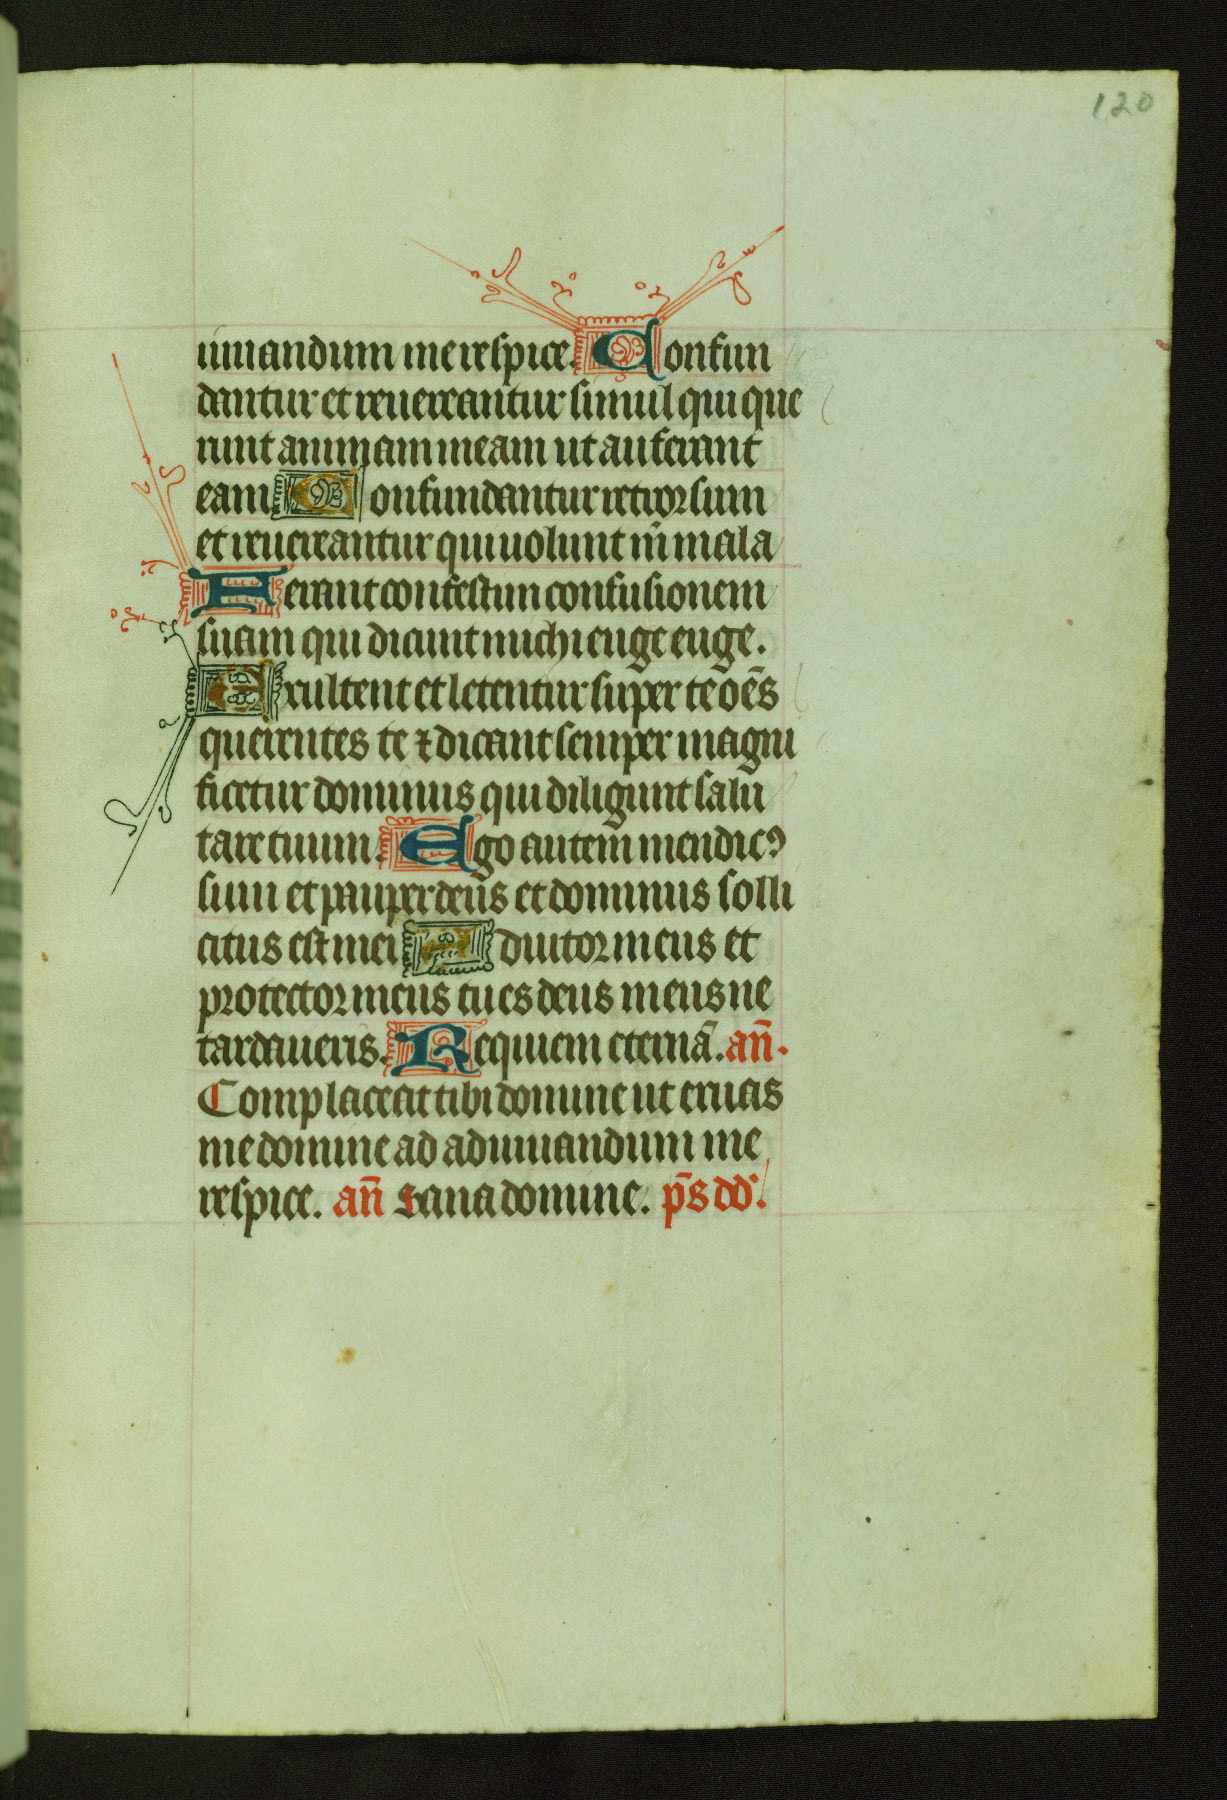 120
iuuandum me respice. Confun
dantur et reuereantur simul qui que
runt animam meam ut auferant
eam Confundantur retrorsum
et reuereantur qui uolunt m̄ mala
Ferant confestim confusionem
suam qui dicunt michi euge euge.
Exultent et letentur super te oēs
querentes te ⁊ dicant semper magni
ficetur dominus qui diligunt salu
tare tuum. Ego autem mendicꝰ
sum et pauper deus et dominus solli
citus est mei Adiutor meus et
protector meus tu es deus meus ne
tardaueris. Requiem eternā. an̄.
Complaceat tibi domine ut eruas
me domine ad adiuuandum me
respice. an̄ Sana domine. p̄s dd̄.